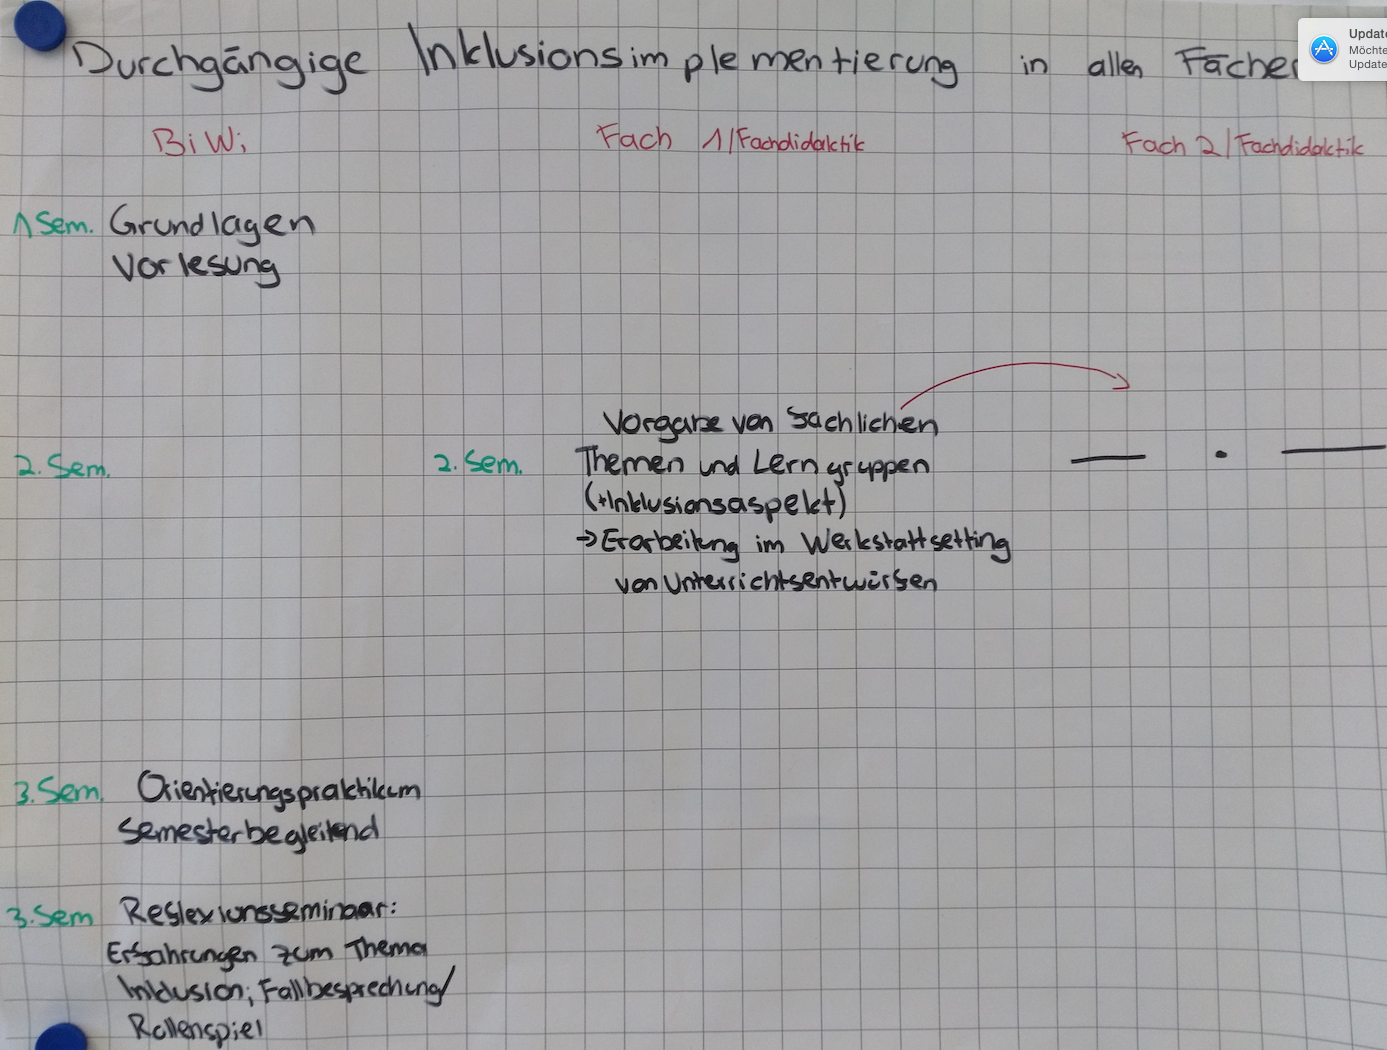 Durchgängige Inklusionsimplementierung in allen Fächer
Update
Möchte
Update
BiWi
Fach 1/Fachdidaktik
Fach 2/Fachdidaktik
1 Sem. Grundlagen
Vorlesung
Vorgabe von sachlichen
2. Sem.
2. Sem. Themen und Lerngruppen
(+Inklusionsaspekt)
→ Erarbeitung im Werkstattsetting
von Unterrichtsentwürfen
3. Sem. Orientierungspraktikum
semesterbegleitend
3. Sem Reflexionsseminaar:
Erfahrungen zum Thema
Inklusion; Fallbesprechung/
Rollenspiel